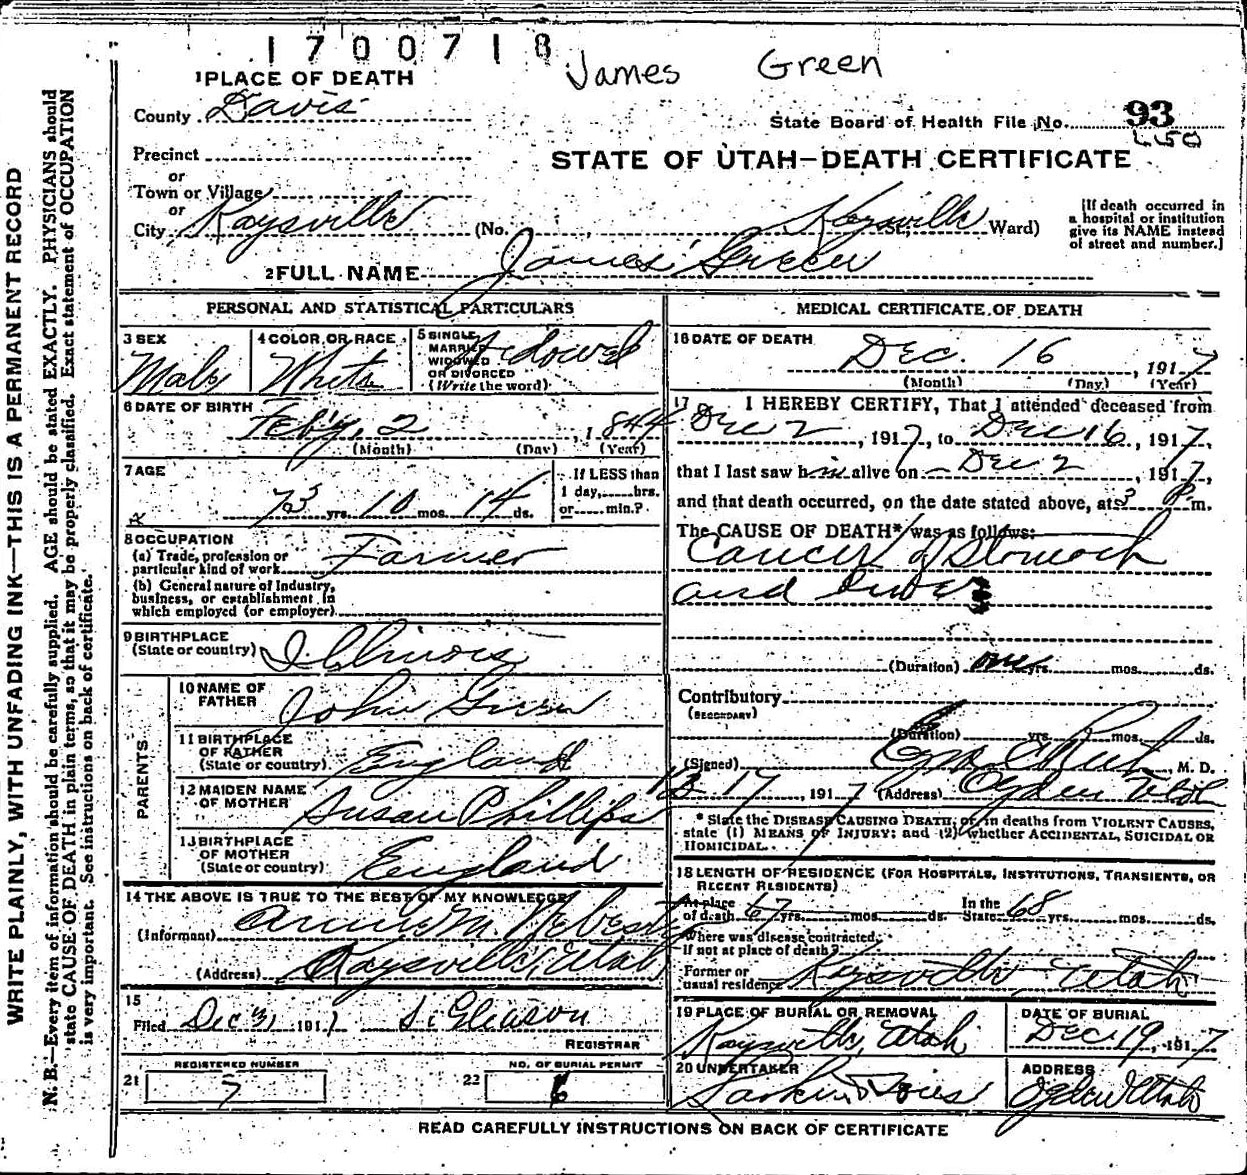 1700718
James Green
1 PLACE OF DEATH
County Davis
State Board of Health File No. 93
Precinct
or
STATE OF UTAH—DEATH CERTIFICATE
Town or Village
or
City Kaysville (No. , Kaysville St; Ward)
[If death occurred in a hospital or institution give its NAME instead of street and number.]
2 FULL NAME James Green
WRITE PLAINLY, WITH UNFADING INK—THIS IS A PERMANENT RECORD
N. B.—Every item of information should be carefully supplied. AGE should be stated EXACTLY. PHYSICIANS should
state CAUSE OF DEATH in plain terms, so that it may be properly classified. Exact statement of OCCUPATION
is very important. See instructions on back of certificate.
PERSONAL AND STATISTICAL PARTICULARS
3 SEX
Male
4 COLOR OR RACE
White
5 SINGLE,
MARRIED
WIDOWED
OR DIVORCED
(Write the word)
Widowed
6 DATE OF BIRTH
Feb'y, 2, 1844
(Month) (Day) (Year)
7 AGE
73 yrs. 10 mos. 14 ds.
If LESS than
1 day, hrs.
or min.?
8 OCCUPATION
(a) Trade, profession or
particular kind of work Farmer
(b) General nature of Industry,
business, or establishment in
which employed (or employer)
9 BIRTHPLACE
(State or country) Illinois
PARENTS
10 NAME OF
FATHER John Green
11 BIRTHPLACE
OF FATHER
(State or country) England
12 MAIDEN NAME
OF MOTHER Susan Phillips
13 BIRTHPLACE
OF MOTHER
(State or country) England
14 THE ABOVE IS TRUE TO THE BEST OF MY KNOWLEDGE
(Informant) M.
(Address) Kaysville Utah
15
Filed Dec 31 1917 S. Gleason
REGISTRAR
REGISTERED NUMBER
21 7
NO. OF BURIAL PERMIT
22 6
MEDICAL CERTIFICATE OF DEATH
16 DATE OF DEATH
Dec. 16, 1917
(Month) (Day) (Year)
17 I HEREBY CERTIFY, That I attended deceased from
Dec 2, 1917, to Dec 16, 1917,
that I last saw him alive on Dec 2, 1917,
and that death occurred, on the date stated above, at 3 P m.
The CAUSE OF DEATH* was as follows:
Cancer of Stomach
and liver
(Duration) one yrs. mos. ds.
Contributory
(SECONDARY)
(Duration) yrs. mos. ds.
(Signed) M. D.
12 17, 1917 (Address) Ogden Utah
* State the DISEASE CAUSING DEATH; or, in deaths from VIOLENT CAUSES,
state (1) MEANS OF INJURY; and (2) whether ACCIDENTAL, SUICIDAL OR
HOMICIDAL.
18 LENGTH OF RESIDENCE (FOR HOSPITALS, INSTITUTIONS, TRANSIENTS, OR
RECENT RESIDENTS)
At place of death 67 yrs. mos. ds. In the State 68 yrs. mos. ds.
Where was disease contracted,
if not at place of death?
Former or
usual residence Kaysville, Utah
19 PLACE OF BURIAL OR REMOVAL
Kaysville, Utah
DATE OF BURIAL
Dec. 19, 1917
20 UNDERTAKER
Larkin & Sons
ADDRESS
Ogden Utah
READ CAREFULLY INSTRUCTIONS ON BACK OF CERTIFICATE